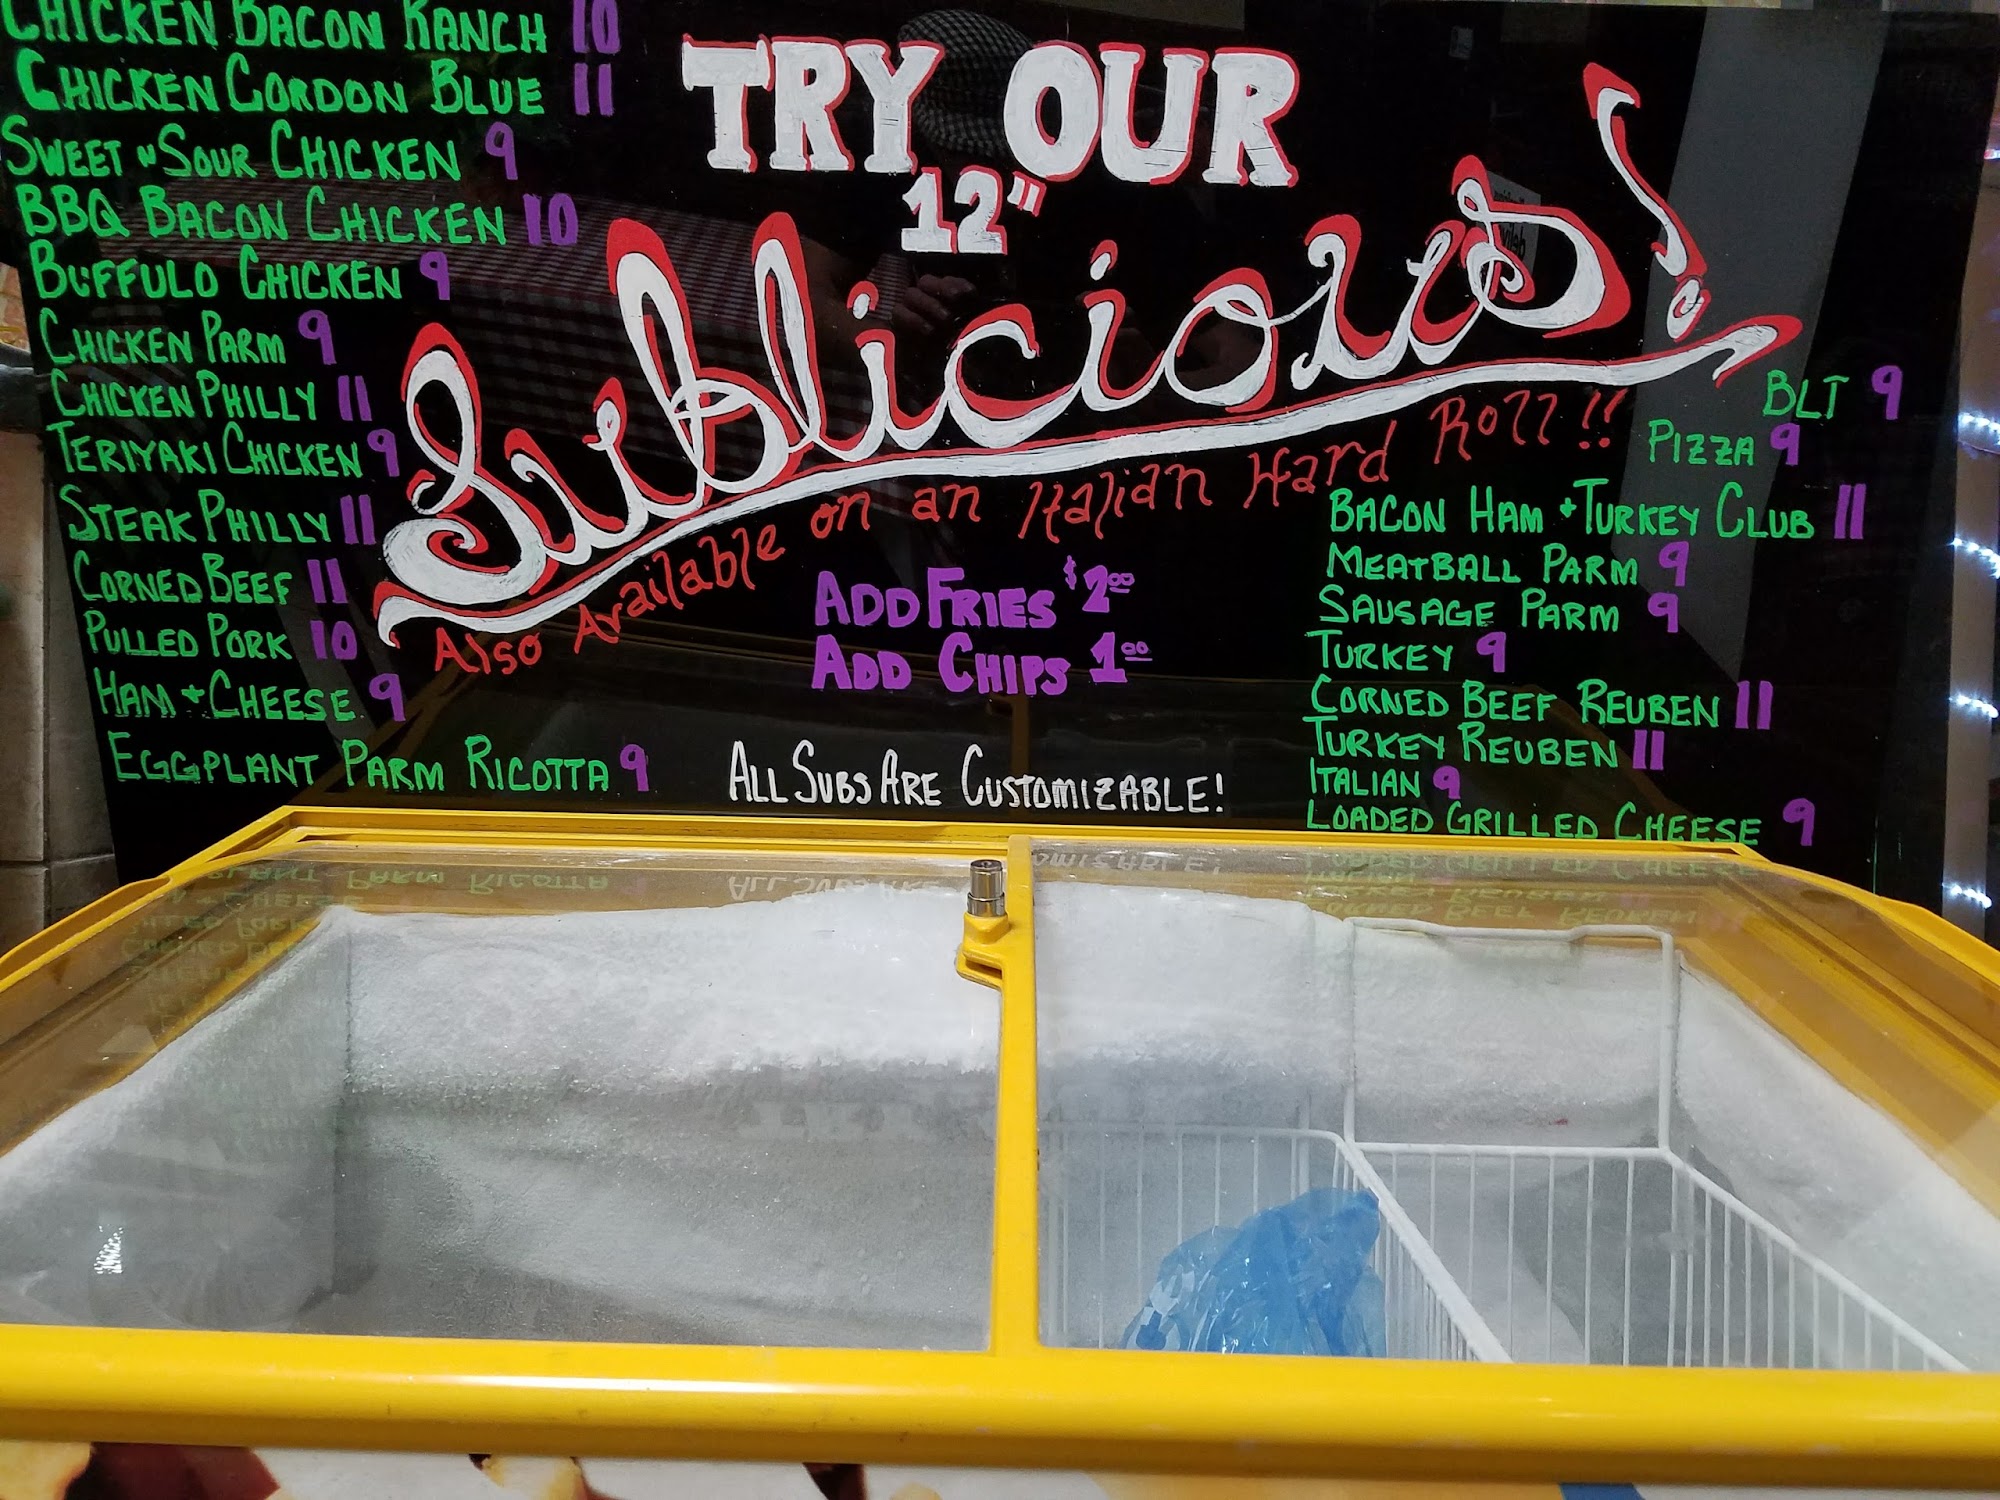 CHICKEN BACON RANCH 10
CHICKEN CORDON BLUE 11
SWEET N SOUR CHICKEN 9
BBQ BACON CHICKEN 10
BUFFULO CHICKEN 9
CHICKEN PARM 9
CHICKEN PHILLY 11
TERIYAKI CHICKEN 9
STEAK PHILLY 11
CORNED BEEF 11
PULLED PORK 10
HAM + CHEESE 9
EGGPLANT PARM RICOTTA 9
TRY OUR
12"
Sublicious!
Also Available on an Italian Hard Roll!!
ADD FRIES $2.00
ADD CHIPS 1.00
ALL SUBS ARE CUSTOMIZABLE!
BLT 9
PIZZA 9
BACON HAM + TURKEY CLUB 11
MEATBALL PARM 9
SAUSAGE PARM 9
TURKEY 9
CORNED BEEF REUBEN 11
TURKEY REUBEN 11
ITALIAN 9
LOADED GRILLED CHEESE 9